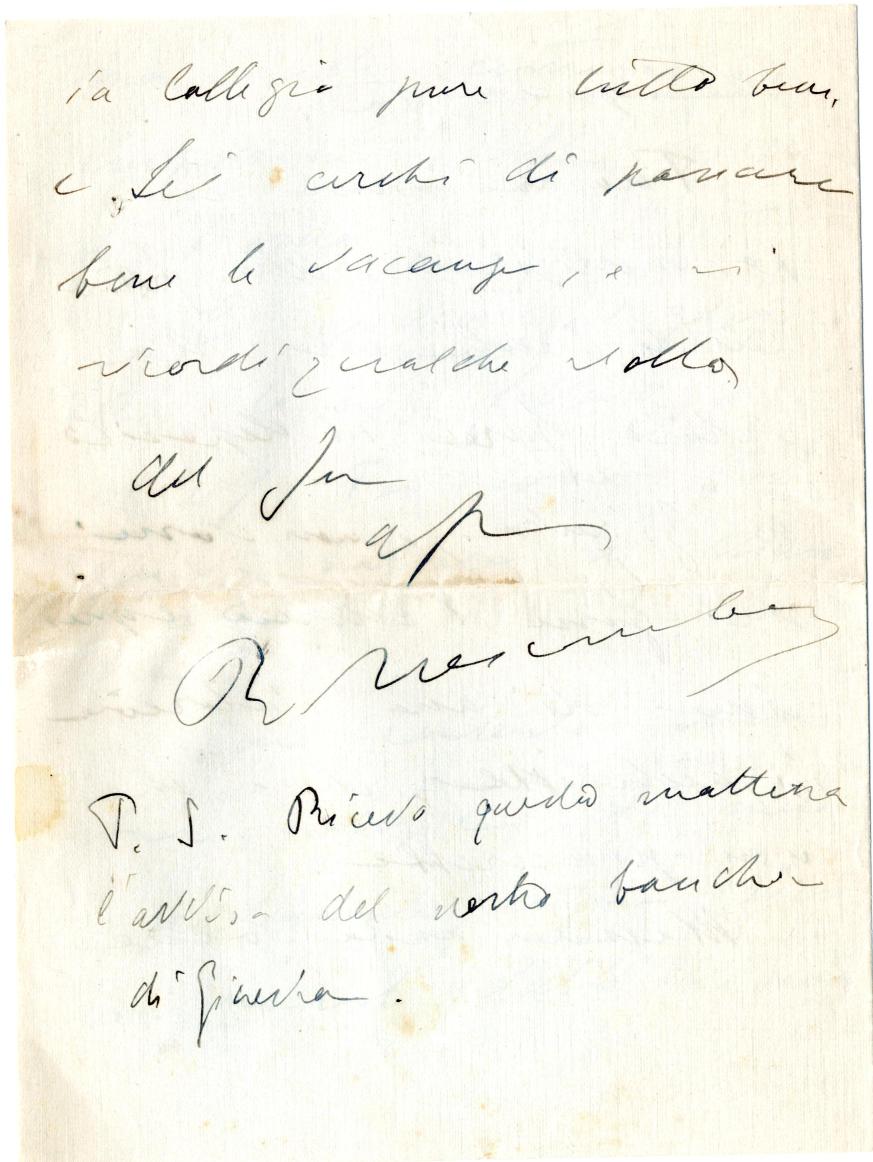 in Collegio pure tutto bene,
e Lei cerchi di passare
bene le vacanze, e mi
ricordi qualche volta
del Suo
aff
P. S. Ricevo questa mattina
l'avviso del nostro banchiere
di Ginevra.